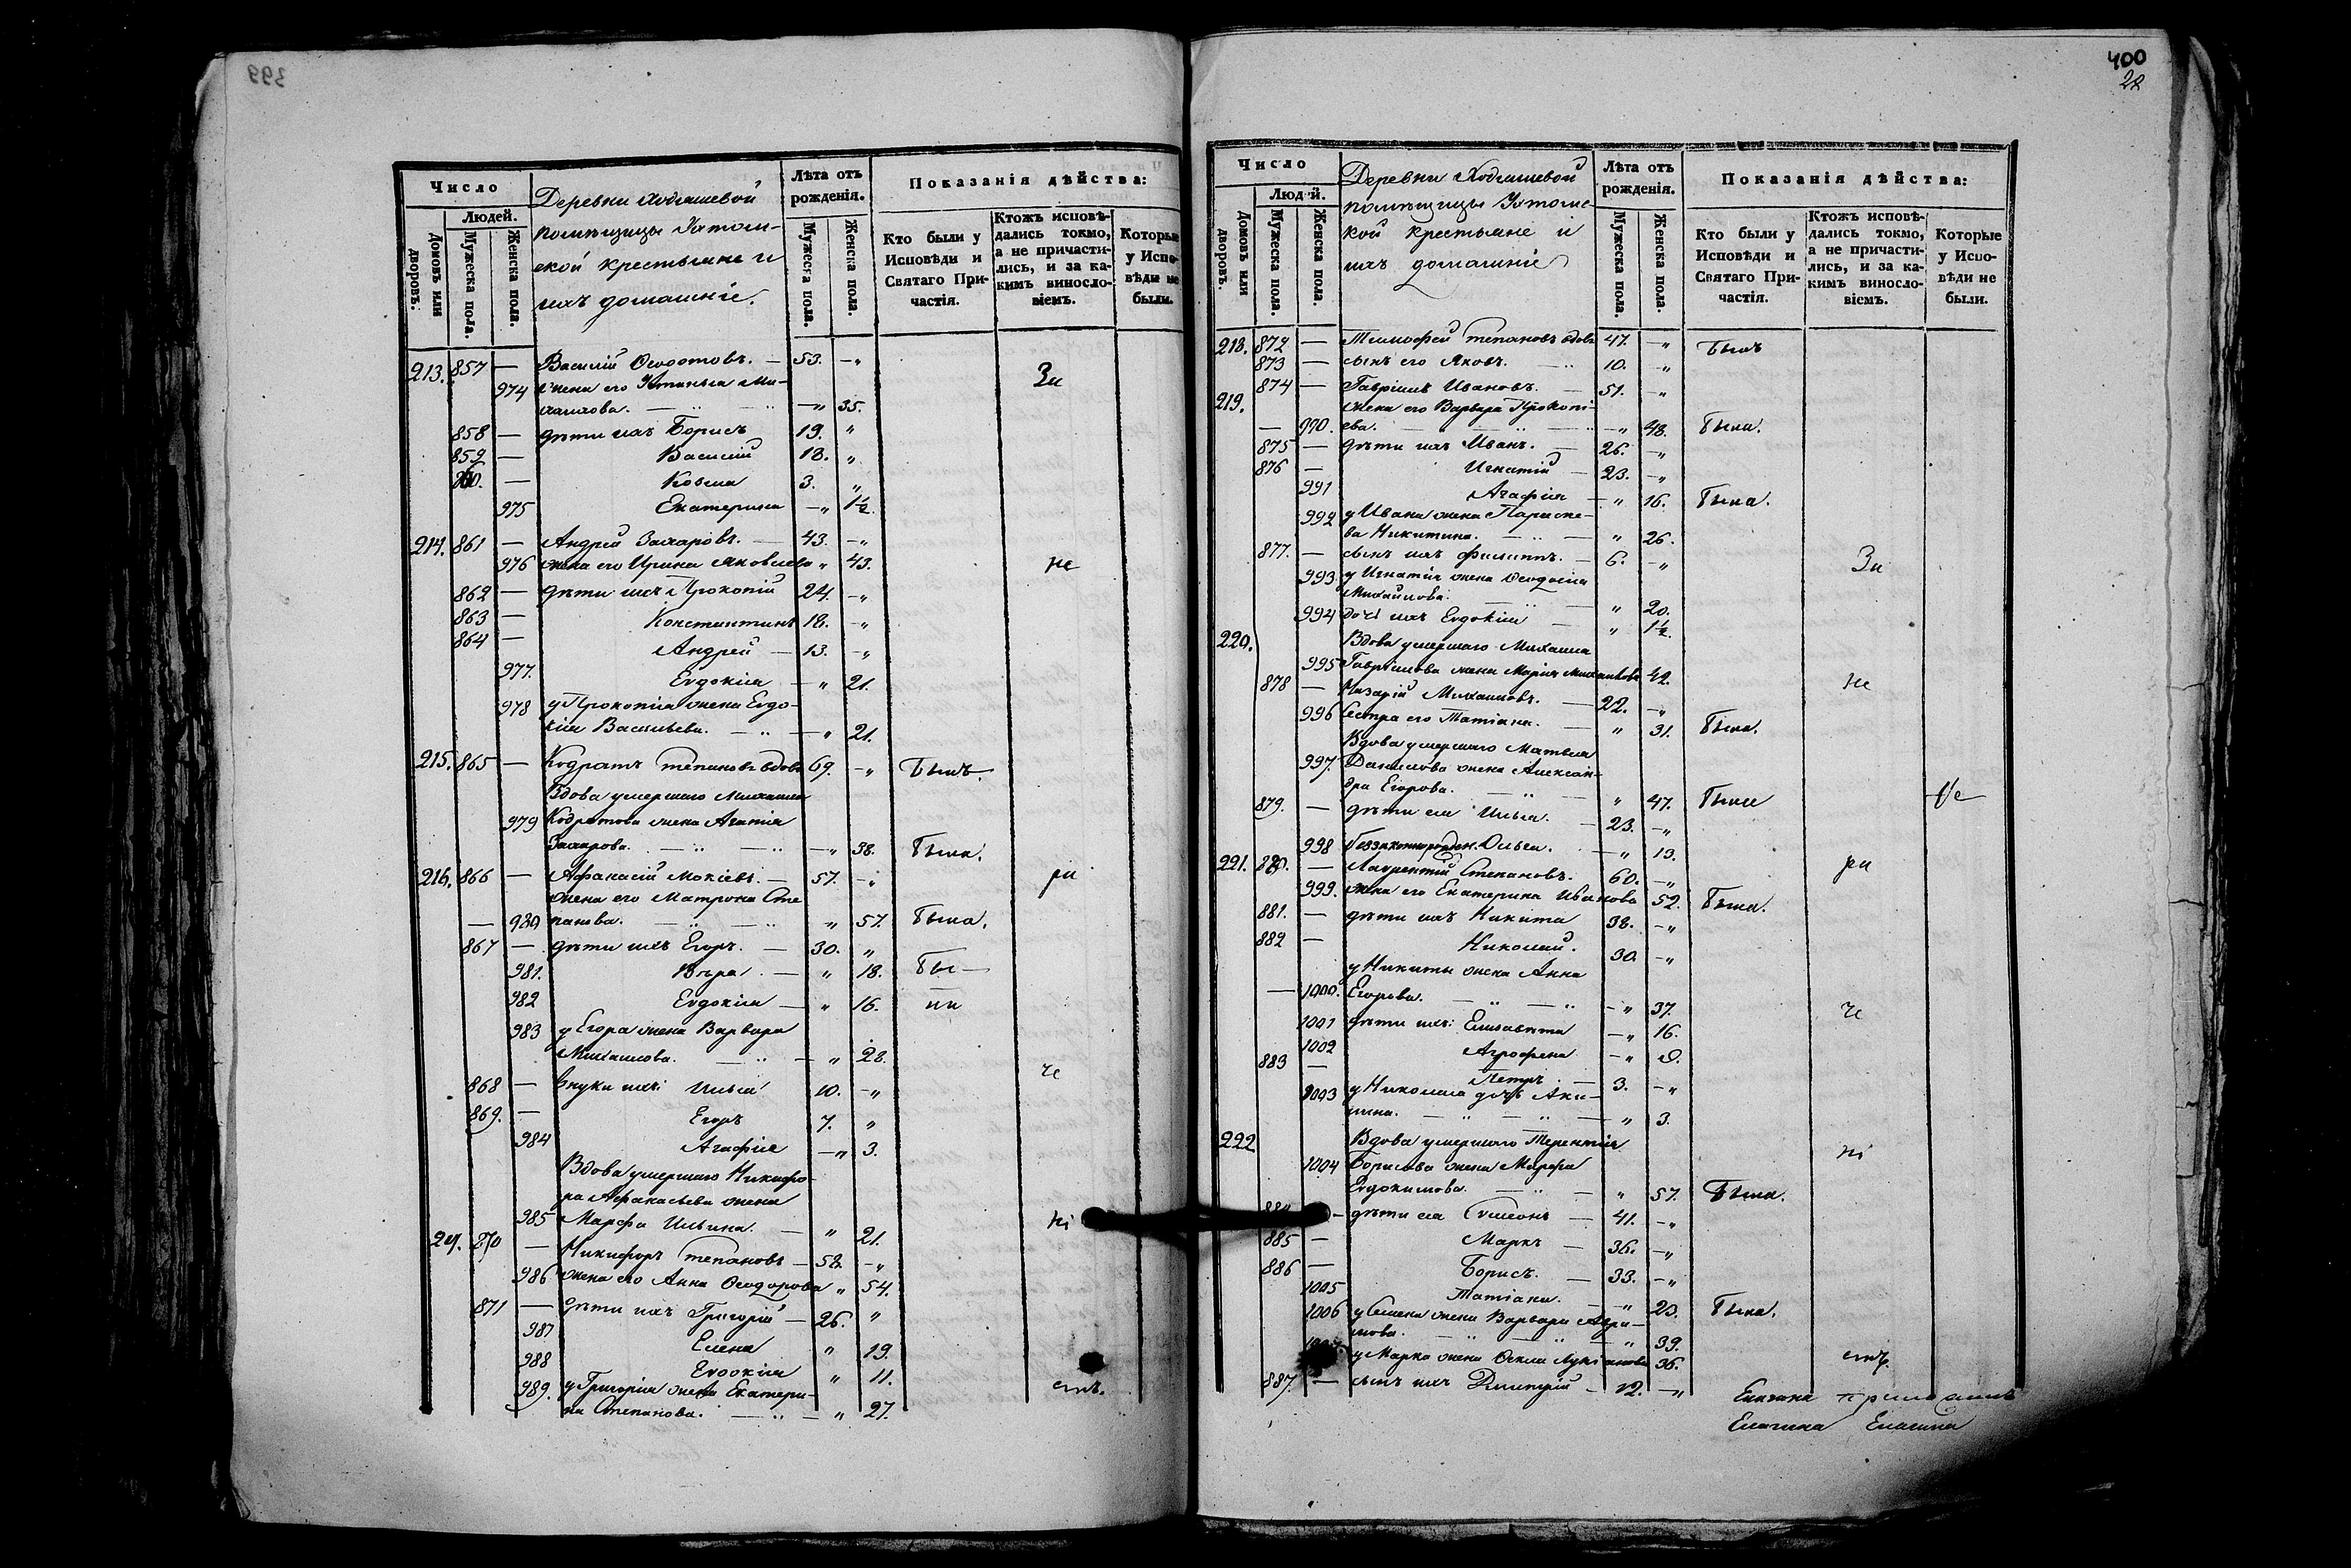 399
Число
Людей.
Домовъ или дворовъ.
Мужеска пола.
Женска пола.
Деревни
помѣщицы
крестьяне и
ихъ домашніе.
Лѣта отъ рожденія.
Мужеска пола.
Женска пола.
Показанія дѣйства:
Кто были у Исповѣди и Святаго Причастія.
Ктожъ исповѣдались токмо, а не причастились, и за какимъ винословіемъ.
Которые у Исповѣди не были.
213. 857 — Василій Ѳеодотовъ. — 53. — „
974 жена его Татьяна Ми-
хаилова. — „ 35.
За
858 — дѣти ихъ Борисъ 19. „
859 — Василій 18. „
860. — Козма 3. „
975 Екатерина — „ 1½
214. 861 — Андрей Захаровъ. — 43. — „
976 жена его Ирина Яковлева „ 43.
не
862 — дѣти ихъ Прокопій 24. — „
863 — Константинъ 18. — „
864 — Андрей — 13. — „
977. Евдокія — „ 21.
978 у Прокопія жена Евдо-
кія Васильева. — „ 21.
215. 865 — Кодратъ Степановъ вдовъ 69. — „ Былъ.
Вдова умершаго Михаила
979 Кодратова жена Агапія
Захарова. — „ 38. Была.
216. 866 — Афанасій Мокіевъ. — 57. — „
ра
жена его Матрона Сте
— 980 панова. „ 57. Была.
867 — дѣти ихъ Егоръ. — 30. „
981. Вѣра. — „ 18. Бы—
982 Евдокія — „ 16. ли
983 у Егора жена Варвара
Михаилова. — „ 28.
868 — внуки ихъ: Илья 10. — „
че
869. — Егоръ 7. „
984 Агафія — „ 3.
Вдова умершаго Никифо-
ра Афанасьева жена
985 Марфа Ильина. — „ 21.
ні
217. 870 — Никифоръ Степановъ — 58. — „
986 жена его Анна Ѳеодорова „ 54.
871 — дѣти ихъ Григорій — 26. „
987 Елена „ 19.
988 Евдокія „ 11.
989. у Григорія жена Екатери-
на Степанова. — „ 27.
емъ.
400
22
Число
Людей.
Домовъ или дворовъ.
Мужеска пола.
Женска пола.
Деревни
помѣщицы
кой крестьяне и
ихъ домашніе
Лѣта отъ рожденія.
Мужеска пола.
Женска пола.
Показанія дѣйства:
Кто были у Исповѣди и Святаго Причастія.
Ктожъ исповѣдались токмо, а не причастились, и за какимъ винословіемъ.
Которые у Исповѣди не были.
218. 872 — Тимофей Степановъ вдовъ 47. — „ Былъ
873 — сынъ его Яковъ. 10. — „
874 — Гавріилъ Ивановъ. — 51. — „
219. жена его Варвара Прокопі-
— 990. ева. — „ 48. Была.
875 — дѣти ихъ Иванъ. — 26. — „
876 — Игнатій — 23. — „
991 Агафія — „ 16. Была.
992 у Ивана жена Параске-
ва Никитина. — „ 26.
877. — сынъ ихъ Филиппъ. — 6. — „
За
993 у Игнатія жена Ѳеодосія
Михайлова. — „ 20.
994 дочь ихъ Евдокія — „ 1½.
220. Вдова умершаго Михаила
995 Гавріилова жена Марія Михаилова 42.
878 — Назарій Михаиловъ. — 22. — „
не
996 Сестра его Татіана. — „ 31. Была.
Вдова умершаго Матвея
997. Данилова жена Алексан-
дра Егорова. — „ 47. Была
879. — дѣти ея Илья. — 23. — „
998 Незаконнорожден. Ольга. — „ 13.
221. 880. — Лаврентій Степановъ. 60. — „
ра
999. жена его Екатерина Иванова 52. Была.
881. — дѣти ихъ Никита 38. — „
882 — Николай. 30. — „
у Никиты жена Анна
— 1000. Егорова. — „ 37.
че
1001 дѣти ихъ: Елисавета — „ 16.
1002 Агрофена — „
883 — Петръ — 3. — „
1003 у Николая дочь Аки-
лина. — „ 3.
222 Вдова умершаго Терентія
ні
1004 Борисова жена Марфа
Евдокимова. — „ 57. Была.
884 — дѣти ея Симеонъ — 41. — „
885 — Маркъ — 36. — „
886 — Борисъ. — 33. — „
1005 Татіана. — „ 23. Была.
1006 у Семена жена Варвара
— „ 39.
у Марка жена Ѳекла 36.
емъ.
887. — сынъ ихъ Димитрій — 12. — „